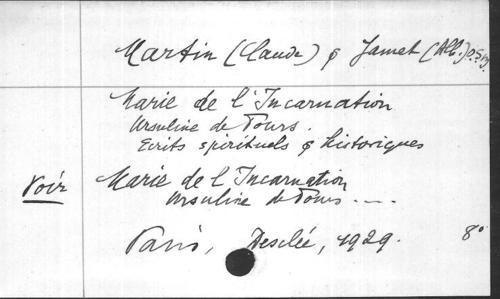 Martin (Claude) & Jamet (Alb.) O.S.B.
Marie de l'Incarnation
Ursuline de Tours.
Ecrits spirituels & historiques
Voir Marie de l'Incarnation
Ursuline de Tours ----
Paris, Desclée, 1929. 8°